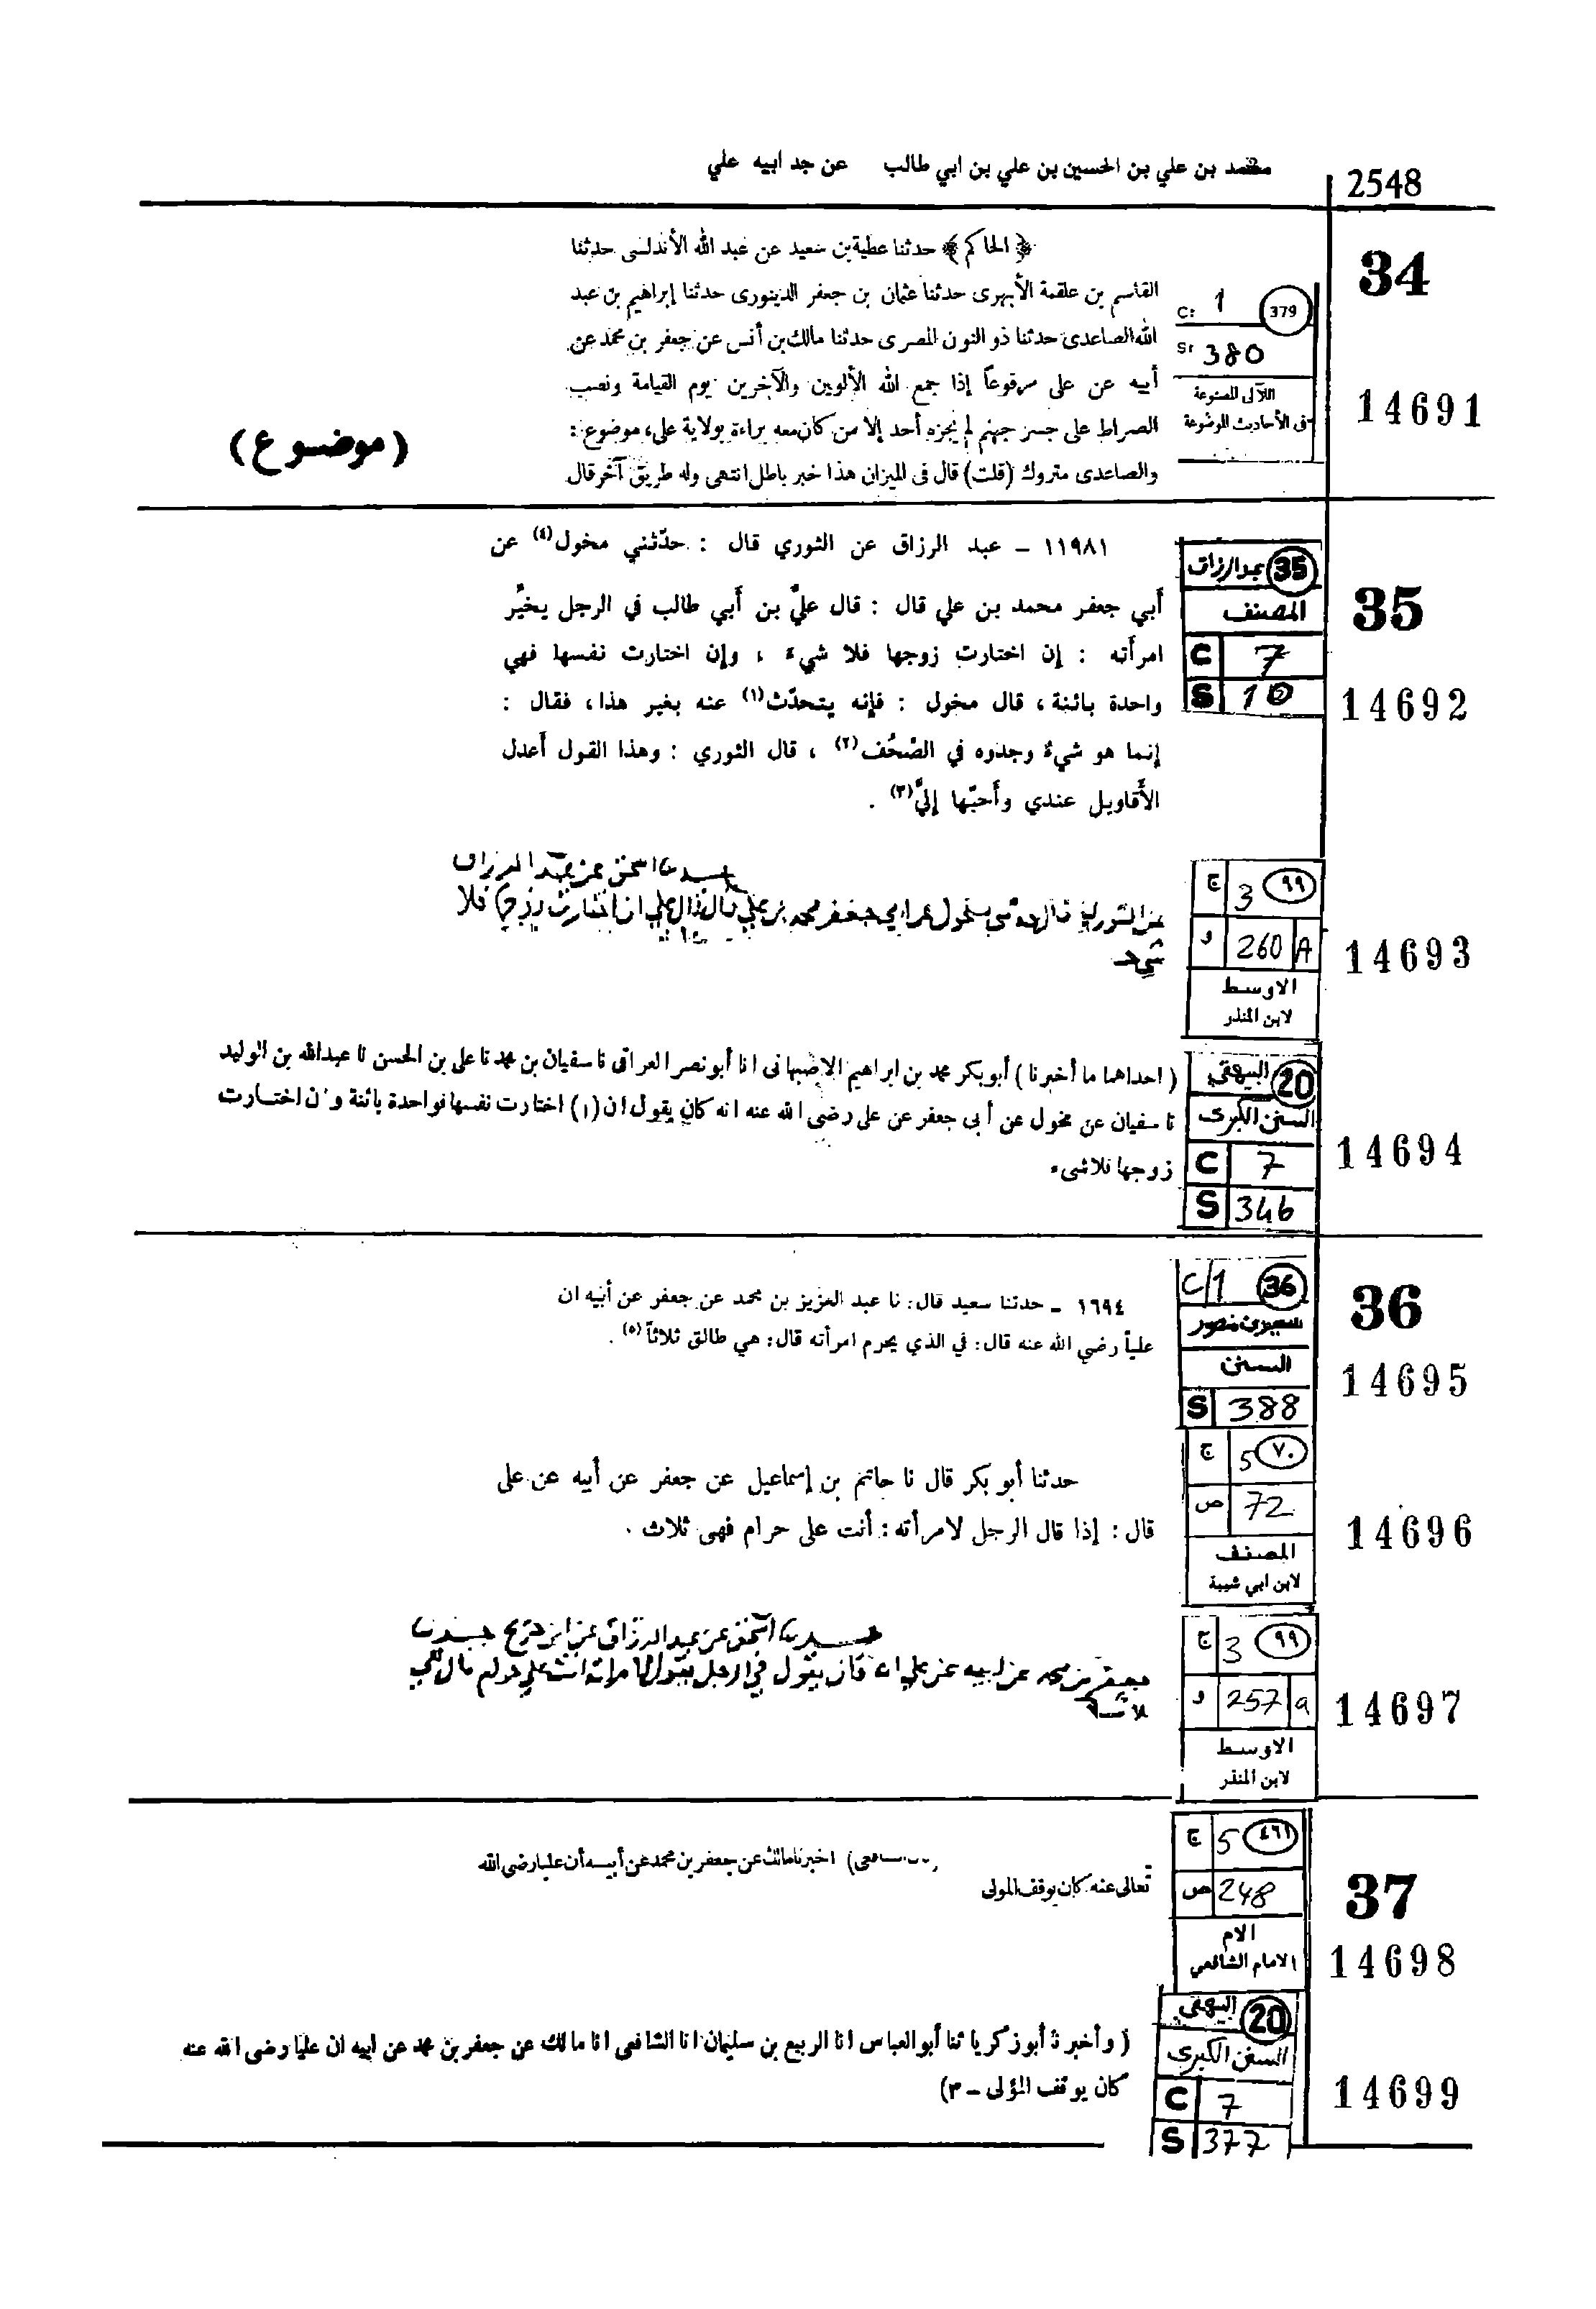 محمد بن علي بن الحسين بن علي بن ابي طالب عن جد ابيه علي
2548
34
14691
C: 1 379
S: 380
اللآلى المصنوعة
فى الأحاديث الموضوعة
﴿الحاكم﴾ حدثنا عطية بن سعيد عن عبد الله الأندلسى حدثنا
القاسم بن علقمة الأبهرى حدثنا عثمان بن جعفر الدينورى حدثنا إبراهيم بن عبد
الله الصاعدى حدثنا ذو النون المصرى حدثنا مالك بن أنس عن جعفر بن محمد عن
أبيه عن على مرفوعاً إذا جمع الله الأولين والآخرين يوم القيامة ونصب
الصراط على جسر جهنم لم يجزه أحد إلا من كان معه براءة بولاية على، موضوع :
والصاعدى متروك (قلت) قال فى الميزان هذا خبر باطل انتهى وله طريق آخر قال
(موضوع)
35
14692
عبدالرزاق 35
المصنف
C 7
S 10
١١٩٨١ – عبد الرزاق عن الثوري قال : حدّثني مخول(٤) عن
أَبي جعفر محمد بن علي قال : قال عليُّ بن أَبي طالب في الرجل يخيِّر
امرأَته : إن اختارت زوجها فلا شيءَ ، وإن اختارت نفسها فهي
واحدة بائنة ، قال مخول : فإنه يتحدّث(١) عنه بغير هذا، فقال :
إنما هو شيءٌ وجدوه في الصُّحُف(٢) ، قال الثوري : وهذا القول أَعدل
الأَقاويل عندي وأَحبّها إليَّ(٣) .
14693
ج 3 ٩٩
و 260 A
الاوسط
لابن المنذر
حدثنا اسحق عن عبد الرزاق
عن الثوري قال حدثني مخول عن ابي جعفر محمد بن علي قال قال علي ان اختارت زوجها فلا
شيء
14694
البيهقي 20
السنن الكبرى
C 7
S 346
( احداهما ما أخبرنا ) أبو بكر محمد بن ابراهيم الاصبهانى انا أبو نصر العراقى نا سفيان بن محمد نا على بن الحسن نا عبدالله بن الوليد
نا سفيان عن مخول عن أبى جعفر عن على رضى الله عنه انه كان يقول ان (١) اختارت نفسها فواحدة بائنة و ن اختارت
زوجها فلا شىء
36
14695
C/1 36
سعيد بن منصور
السنن
S 388
١٦٩٤ – حدثنا سعيد قال: نا عبد العزيز بن محمد عن جعفر عن أبيه ان
علياً رضي الله عنه قال: في الذي يحرم امرأته قال: هي طالق ثلاثاً(٥) .
14696
ج 5 ٧٠
ص 72
المصنف
لابن ابي شيبة
حدثنا أبو بكر قال نا حاتم بن إسماعيل عن جعفر عن أبيه عن على
قال : إذا قال الرجل لامرأته : أنت على حرام فهى ثلاث .
14697
ج 3 ٩٩
و 257 a
الاوسط
لابن المنذر
حدثنا اسحق عن عبد الرزاق عن ابن جريج حدثنا
جعفر بن محمد عن ابيه عن علي انه كان يقول في الرجل يقول لامراته انت علي حرام قال هي
ثلاث
37
14698
ج 5 ٤٦١
ص 248
الام
الامام الشافعي
اخبرنا مالك عن جعفر بن محمد عن أبيه أن عليا رضى الله
تعالى عنه كان يوقف المولى
14699
البيهقي 20
السنن الكبرى
C 7
S 377
( وأخبرنا أبو زكريا ثنا أبو العباس انا الربيع بن سليمان انا الشافعى انا مالك عن جعفر بن محمد عن ابيه ان عليا رضى الله عنه
كان يوقف المؤلى – ٣)